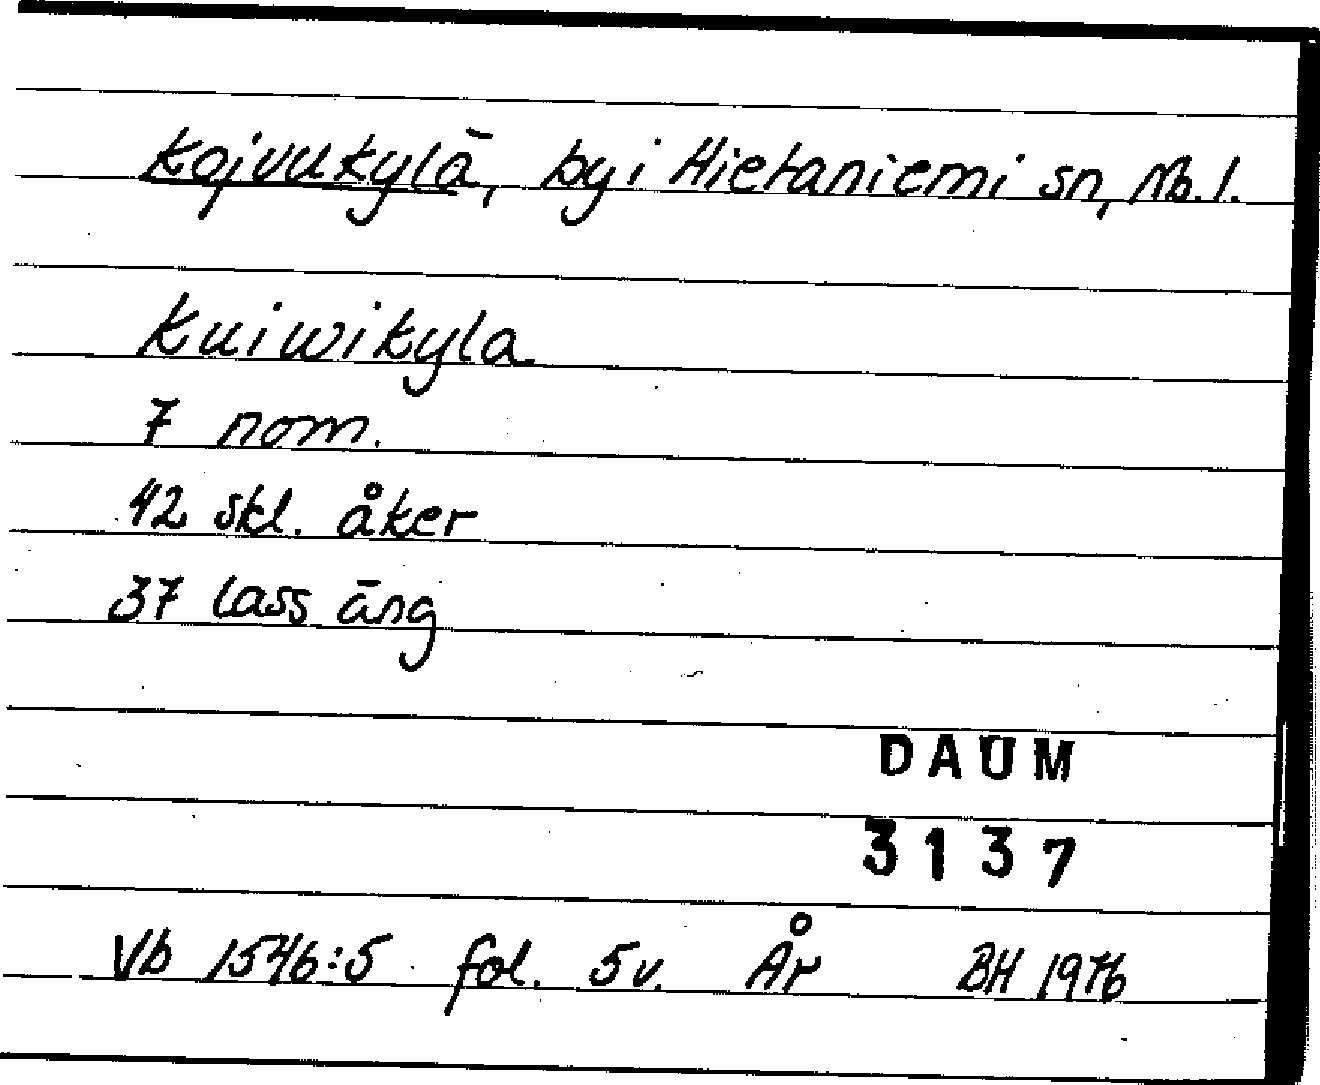 Kojvukylä, by i Hietaniemi sn, Nb. l.
Kuiwikyla
7 nom.
42 skl. åker
37 lass äng
DAUM
3137
Vb 1546:5 fol. 5v. År BH 1976